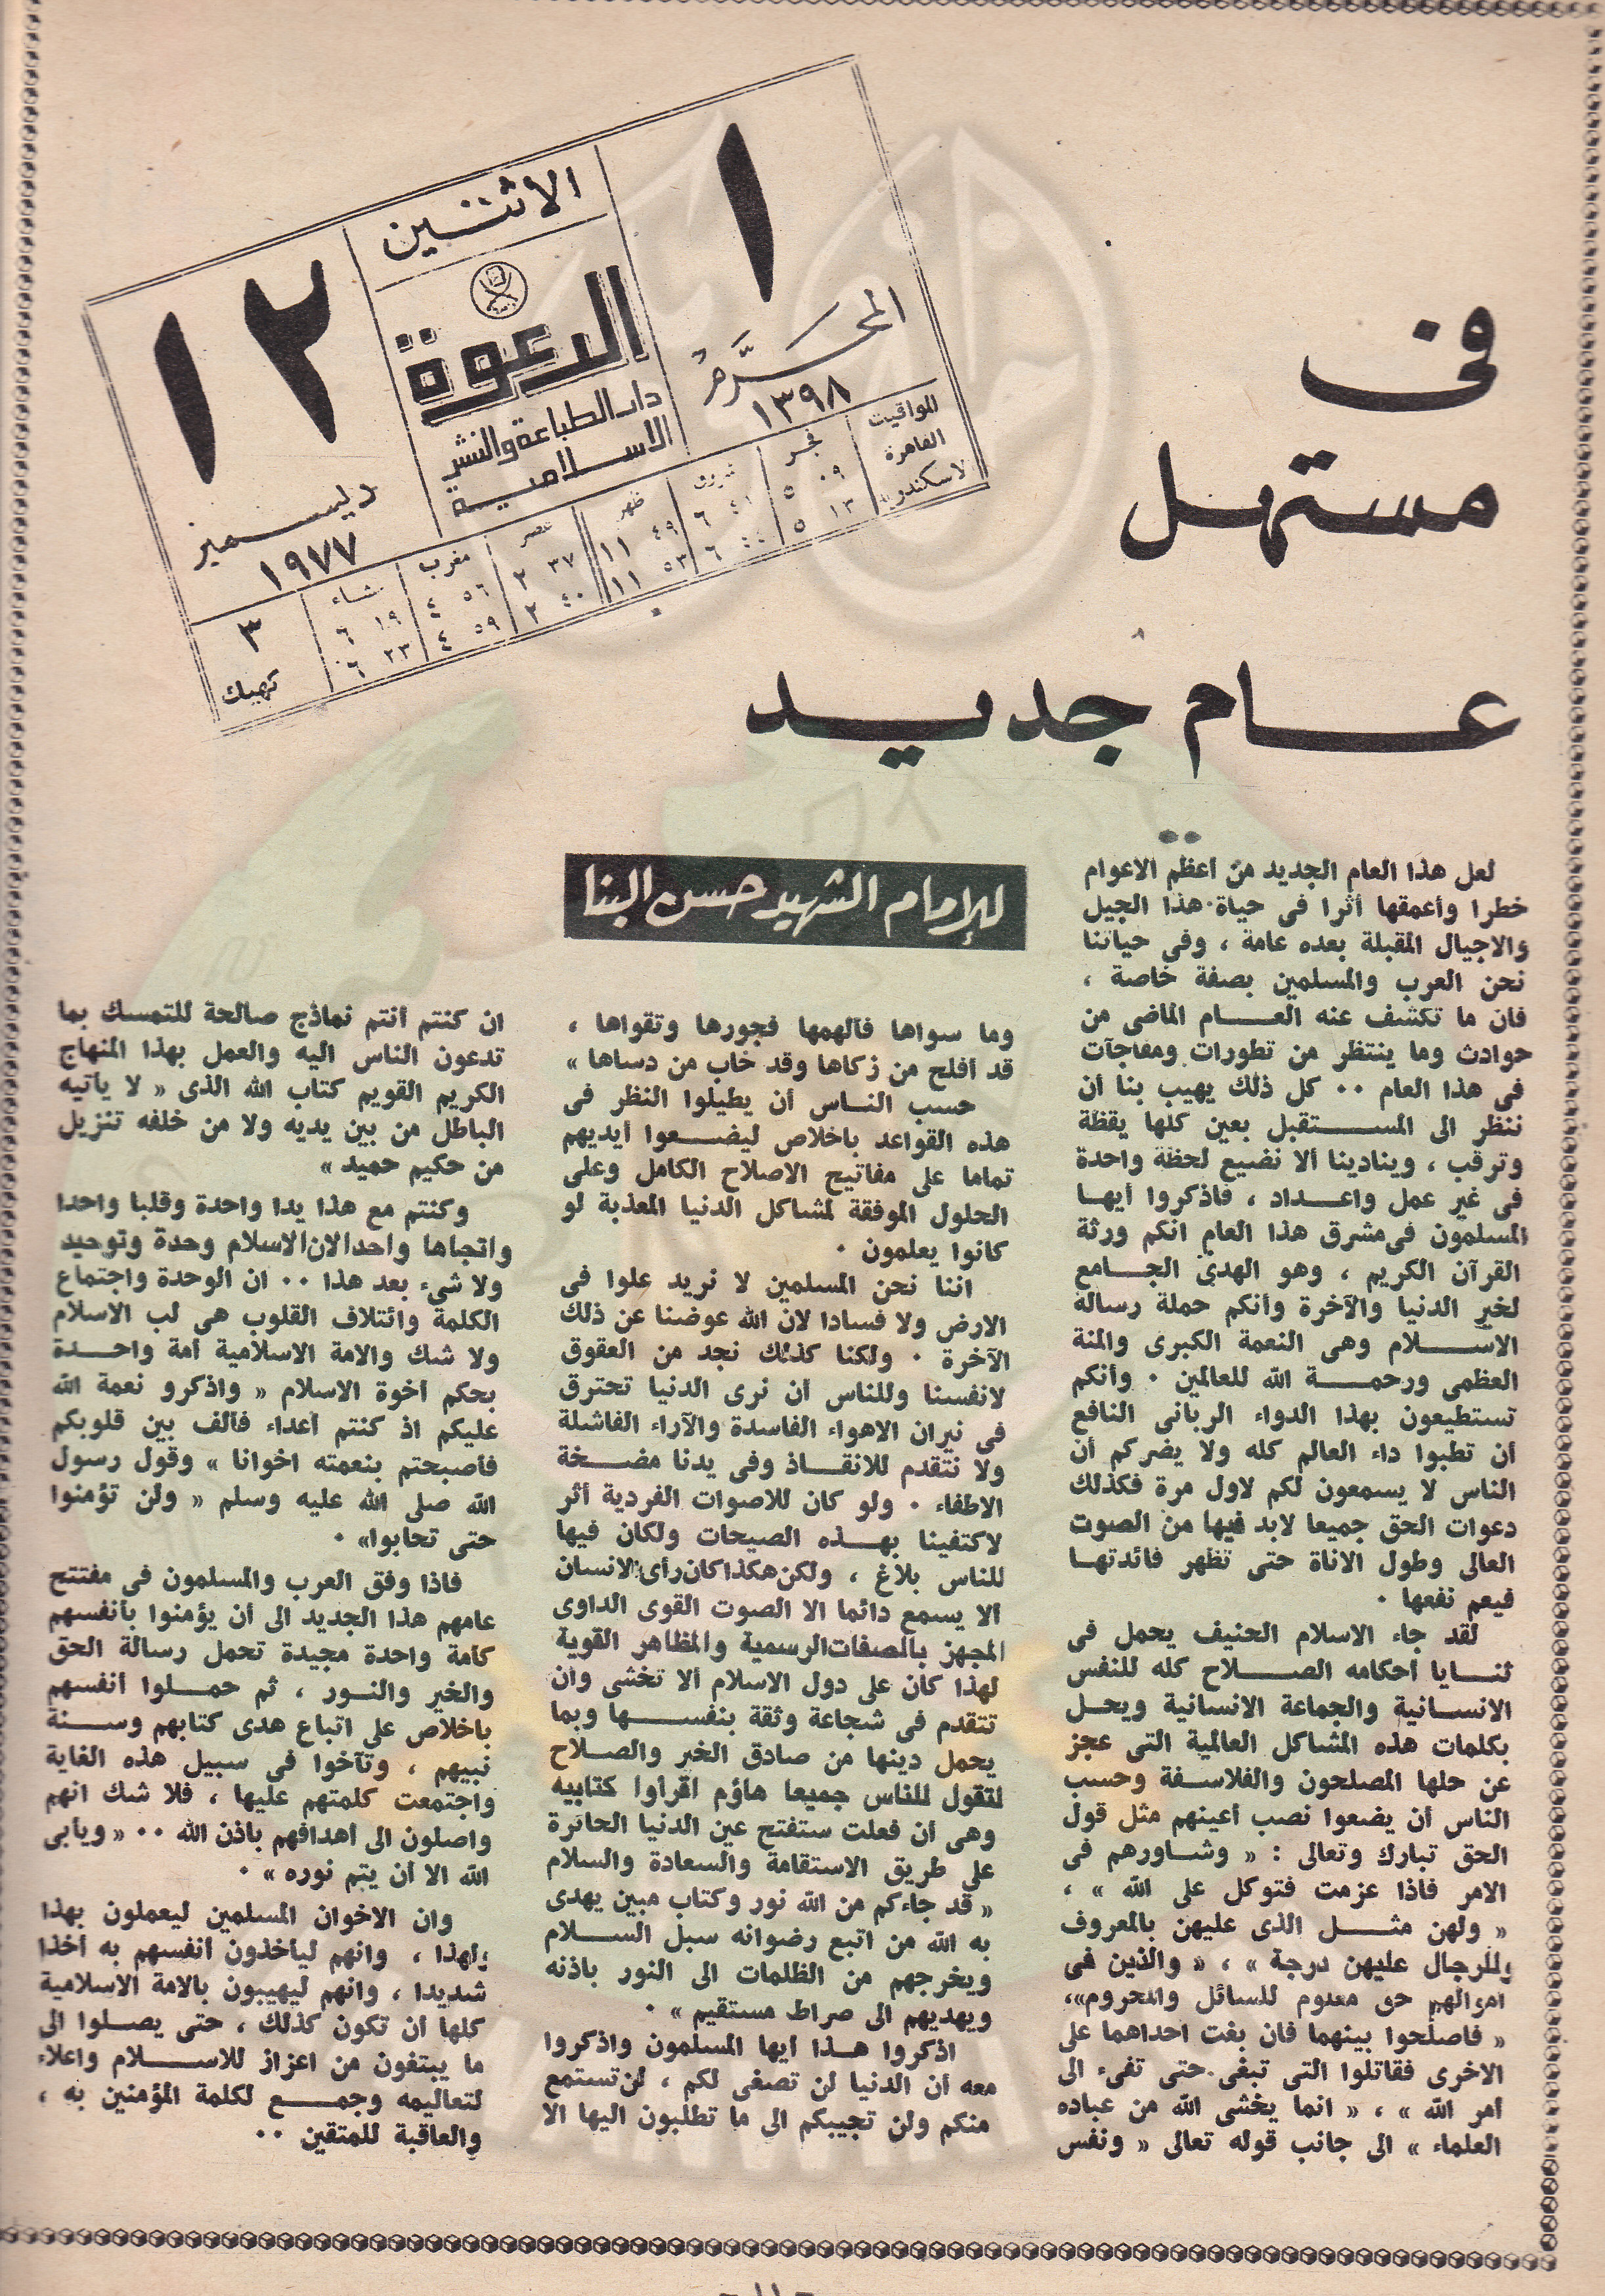 في
مستهل
عام جديد
١
المحرم
١٣٩٨
الاثنين
الدعوة
دار الطباعة والنشر
الاسلامية
١٢
ديسمبر
١٩٧٧
المواقيت
القاهرة
لاسكندرية
فجر
٠٩ ٥
١٣ ٥
شروق
٤١ ٦
٤٤ ٦
ظهر
٤٩ ١١
٥٣ ١١
عصر
٣٧ ٢
٤٠ ٢
مغرب
٥٦ ٤
٥٩ ٤
عشاء
١٩ ٦
٢٣ ٦
٣
كيهك
للإمام الشهيد حسن البنا
لعل هذا العام الجديد من أعظم الاعوام
خطرا وأعمقها أثرا فى حياة هذا الجيل
والاجيال المقبلة بعده عامة ، وفى حياتنا
نحن العرب والمسلمين بصفة خاصة ،
فان ما تكشف عنه العام الماضى من
حوادث وما ينتظر من تطورات ومفاجآت
فى هذا العام ٠٠ كل ذلك يهيب بنا أن
ننظر الى المستقبل بعين كلها يقظة
وترقب ، وينادينا ألا نضيع لحظة واحدة
فى غير عمل واعداد ، فاذكروا أيها
المسلمون فى مشرق هذا العام انكم ورثة
القرآن الكريم ، وهو الهدى الجامع
لخير الدنيا والآخرة وأنكم حملة رسالة
الاسلام وهى النعمة الكبرى والمنة
العظمى ورحمة الله للعالمين ٠ وأنكم
تستطيعون بهذا الدواء الربانى النافع
أن تطبوا داء العالم كله ولا يضركم أن
الناس لا يسمعون لكم لاول مرة فكذلك
دعوات الحق جميعا لابد فيها من الصوت
العالى وطول الاناة حتى تظهر فائدتها
فيعم نفعها ٠
لقد جاء الاسلام الحنيف يحمل فى
ثنايا أحكامه الصلاح كله للنفس
الانسانية والجماعة الانسانية ويحل
بكلمات هذه المشاكل العالمية التى عجز
عن حلها المصلحون والفلاسفة وحسب
الناس أن يضعوا نصب أعينهم مثل قول
الحق تبارك وتعالى : « وشاورهم فى
الامر فاذا عزمت فتوكل على الله » ،
« ولهن مثل الذى عليهن بالمعروف
وللرجال عليهن درجة » ، « والذين فى
أموالهم حق معلوم للسائل والمحروم»،
« فاصلحوا بينهما فان بغت احداهما على
الاخرى فقاتلوا التى تبغى حتى تفىء الى
أمر الله » ، « انما يخشى الله من عباده
العلماء » الى جانب قوله تعالى « ونفس
وما سواها فألهمها فجورها وتقواها ،
قد أفلح من زكاها وقد خاب من دساها »
حسب الناس أن يطيلوا النظر فى
هذه القواعد باخلاص ليضعوا أيديهم
تماما على مفاتيح الاصلاح الكامل وعلى
الحلول الموفقة لمشاكل الدنيا المعذبة لو
كانوا يعلمون ٠
اننا نحن المسلمين لا نريد علوا فى
الارض ولا فسادا لان الله عوضنا عن ذلك
الآخرة ٠ ولكنا كذلك نجد من العقوق
لانفسنا وللناس أن نرى الدنيا تحترق
فى نيران الاهواء الفاسدة والآراء الفاشلة
ولا نتقدم للانقاذ وفى يدنا مضخة
الاطفاء ٠ ولو كان للاصوات الفردية أثر
لاكتفينا بهذه الصيحات ولكان فيها
للناس بلاغ ، ولكن هكذا كان رأى الانسان
ألا يسمع دائما الا الصوت القوى الداوى
المجهز بالصفات الرسمية والمظاهر القوية
لهذا كان على دول الاسلام ألا تخشى وأن
تتقدم فى شجاعة وثقة بنفسها وبما
يحمل دينها من صادق الخير والصلاح
لتقول للناس جميعا هاؤم اقرأوا كتابيه
وهى أن فعلت ستفتح عين الدنيا الحائرة
على طريق الاستقامة والسعادة والسلام
« قد جاءكم من الله نور وكتاب مبين يهدى
به الله من اتبع رضوانه سبل السلام
ويخرجهم من الظلمات الى النور باذنه
ويهديهم الى صراط مستقيم » ٠
اذكروا هذا أيها المسلمون واذكروا
معه أن الدنيا لن تصغى لكم ، لن تستمع
منكم ولن تجيبكم الى ما تطلبون اليها الا
ان كنتم أنتم نماذج صالحة للتمسك بما
تدعون الناس اليه والعمل بهذا المنهاج
الكريم القويم كتاب الله الذى « لا يأتيه
الباطل من بين يديه ولا من خلفه تنزيل
من حكيم حميد »
وكنتم مع هذا يدا واحدة وقلبا واحدا
واتجاها واحدا لان الاسلام وحدة وتوحيد
ولا شىء بعد هذا ٠٠ ان الوحدة واجتماع
الكلمة وائتلاف القلوب هى لب الاسلام
ولا شك والامة الاسلامية أمة واحدة
بحكم أخوة الاسلام « واذكرو نعمة الله
عليكم اذ كنتم أعداء فألف بين قلوبكم
فأصبحتم بنعمته اخوانا » وقول رسول
الله صلى الله عليه وسلم « ولن تؤمنوا
حتى تحابوا» ٠
فاذا وفق العرب والمسلمون فى مفتتح
عامهم هذا الجديد الى أن يؤمنوا بأنفسهم
كامة واحدة مجيدة تحمل رسالة الحق
والخير والنور ، ثم حملوا أنفسهم
باخلاص على اتباع هدى كتابهم وسنة
نبيهم ، وتآخوا فى سبيل هذه الغاية
واجتمعت كلمتهم عليها ، فلا شك انهم
واصلون الى أهدافهم باذن الله ٠٠ « ويأبى
الله الا أن يتم نوره » ٠
وان الاخوان المسلمين ليعملون بهذا
ولهذا ، وانهم ليأخذون أنفسهم به أخذا
شديدا ، وانهم ليهيبون بالامة الاسلامية
كلها أن تكون كذلك ، حتى يصلوا الى
ما يبتغون من اعزاز للاسلام واعلاء
لتعاليمه وجمع لكلمة المؤمنين به ،
والعاقبة للمتقين ٠٠